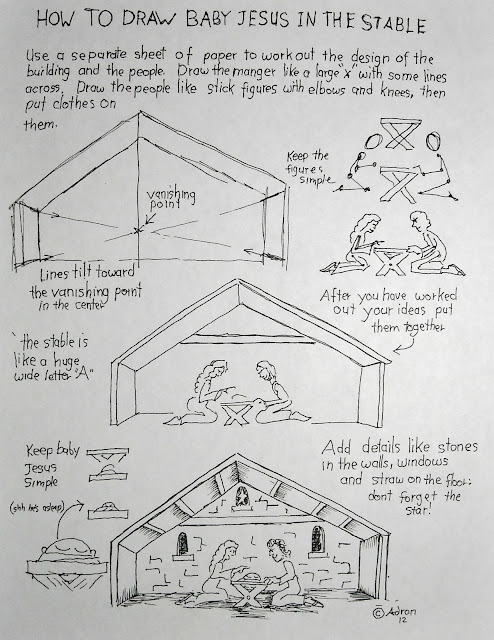 HOW TO DRAW BABY JESUS IN THE STABLE
Use a separate sheet of paper to work out the design of the
building and the people. Draw the manger like a large "x" with some lines
across. Draw the people like stick figures with elbows and knees, then
put clothes on
them.
vanishing
point
Keep the
figures
simple
Lines tilt toward
the vanishing point
in the center
After you have worked
out your ideas put
them together
the stable is
like a huge
wide letter "A"
Keep baby
Jesus
Simple
(shh he's asleep)
Add details like stones
in the walls, windows
and straw on the floor:
dont forget the
star!
© Adron
12